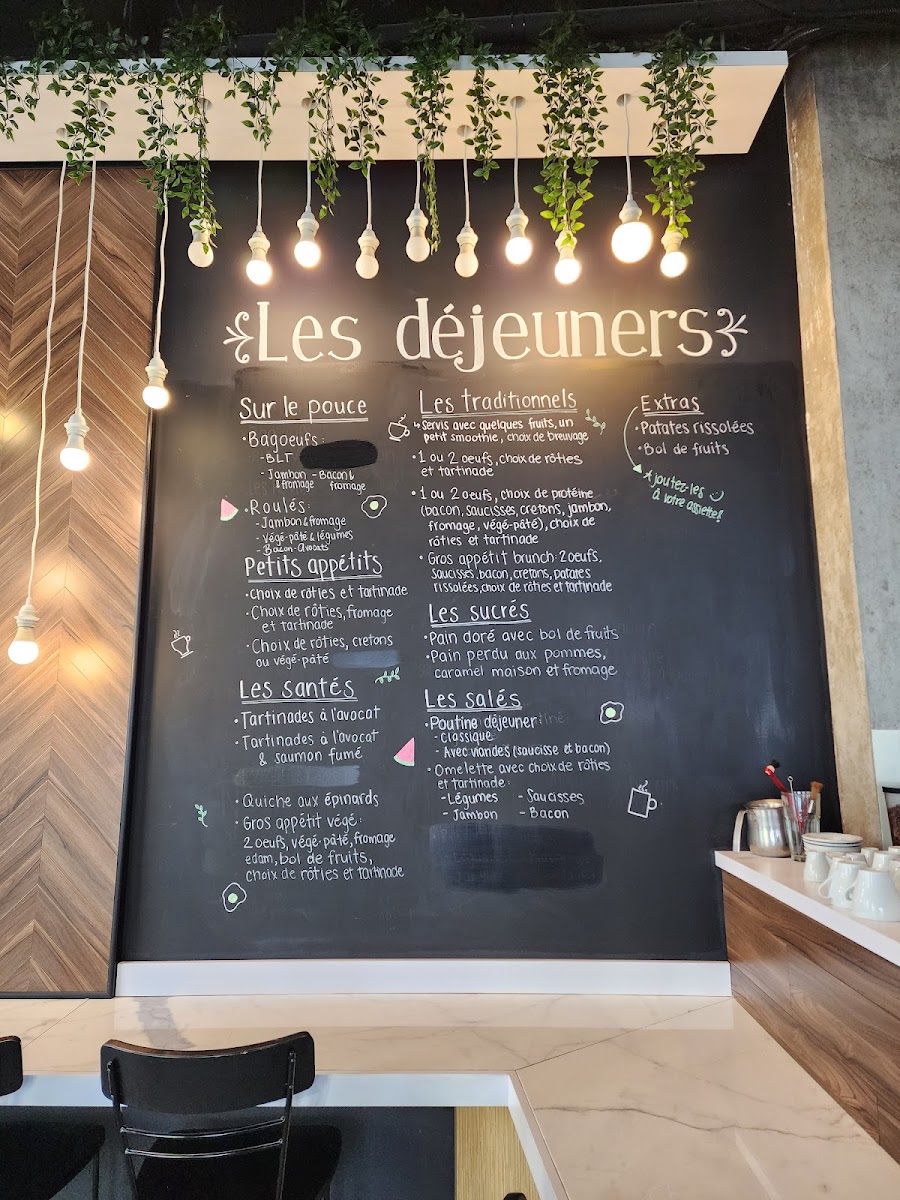 Les déjeuners
Sur le pouce
• Bagoeufs:
- BLT
- Jambon & fromage - Bacon & fromage
• Roulés:
- Jambon & fromage
- Végé-pâté & légumes
- Bacon-Avocats
Petits appétits
• Choix de rôties et tartinade
• Choix de rôties, fromage
et tartinade
• Choix de rôties, cretons
ou végé-pâté
Les santés
• Tartinades à l'avocat
• Tartinades à l'avocat
& saumon fumé
• Quiche aux épinards
• Gros appétit végé:
2 oeufs, végé-pâté, fromage
edam, bol de fruits,
choix de rôties et tartinade
Les traditionnels
↳ Servis avec quelques fruits, un
petit smoothie, choix de breuvage
• 1 ou 2 oeufs, choix de rôties
et tartinade
• 1 ou 2 oeufs, choix de protéine
(bacon, saucisses, cretons, jambon,
fromage, végé-pâté), choix de
rôties et tartinade
• Gros appétit brunch: 2 oeufs,
saucisses, bacon, cretons, patates
rissolées, choix de rôties et tartinade
Les sucrés
• Pain doré avec bol de fruits
• Pain perdu aux pommes,
caramel maison et fromage
Les salés
• Poutine déjeuner
- Classique
- Avec viandes (saucisse et bacon)
• Omelette avec choix de rôties
et tartinade:
- Légumes - Saucisses
- Jambon - Bacon
Extras
• Patates rissolées
• Bol de fruits
Ajoutez-les
à votre assiette!